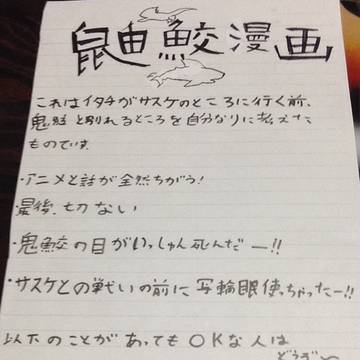 鼬鮫漫画
これはイタチがサスケのところに行く前、
鬼鮫と別れるところを自分なりに考えた
ものです.
・アニメと話が全然ちがう!
・最後、切ない
・鬼鮫の目がいっしゅん死んだー!!
・サスケとの戦いの前に写輪眼使っちゃったー!!
以下のことがあってもOKな人は
どうぞ〜